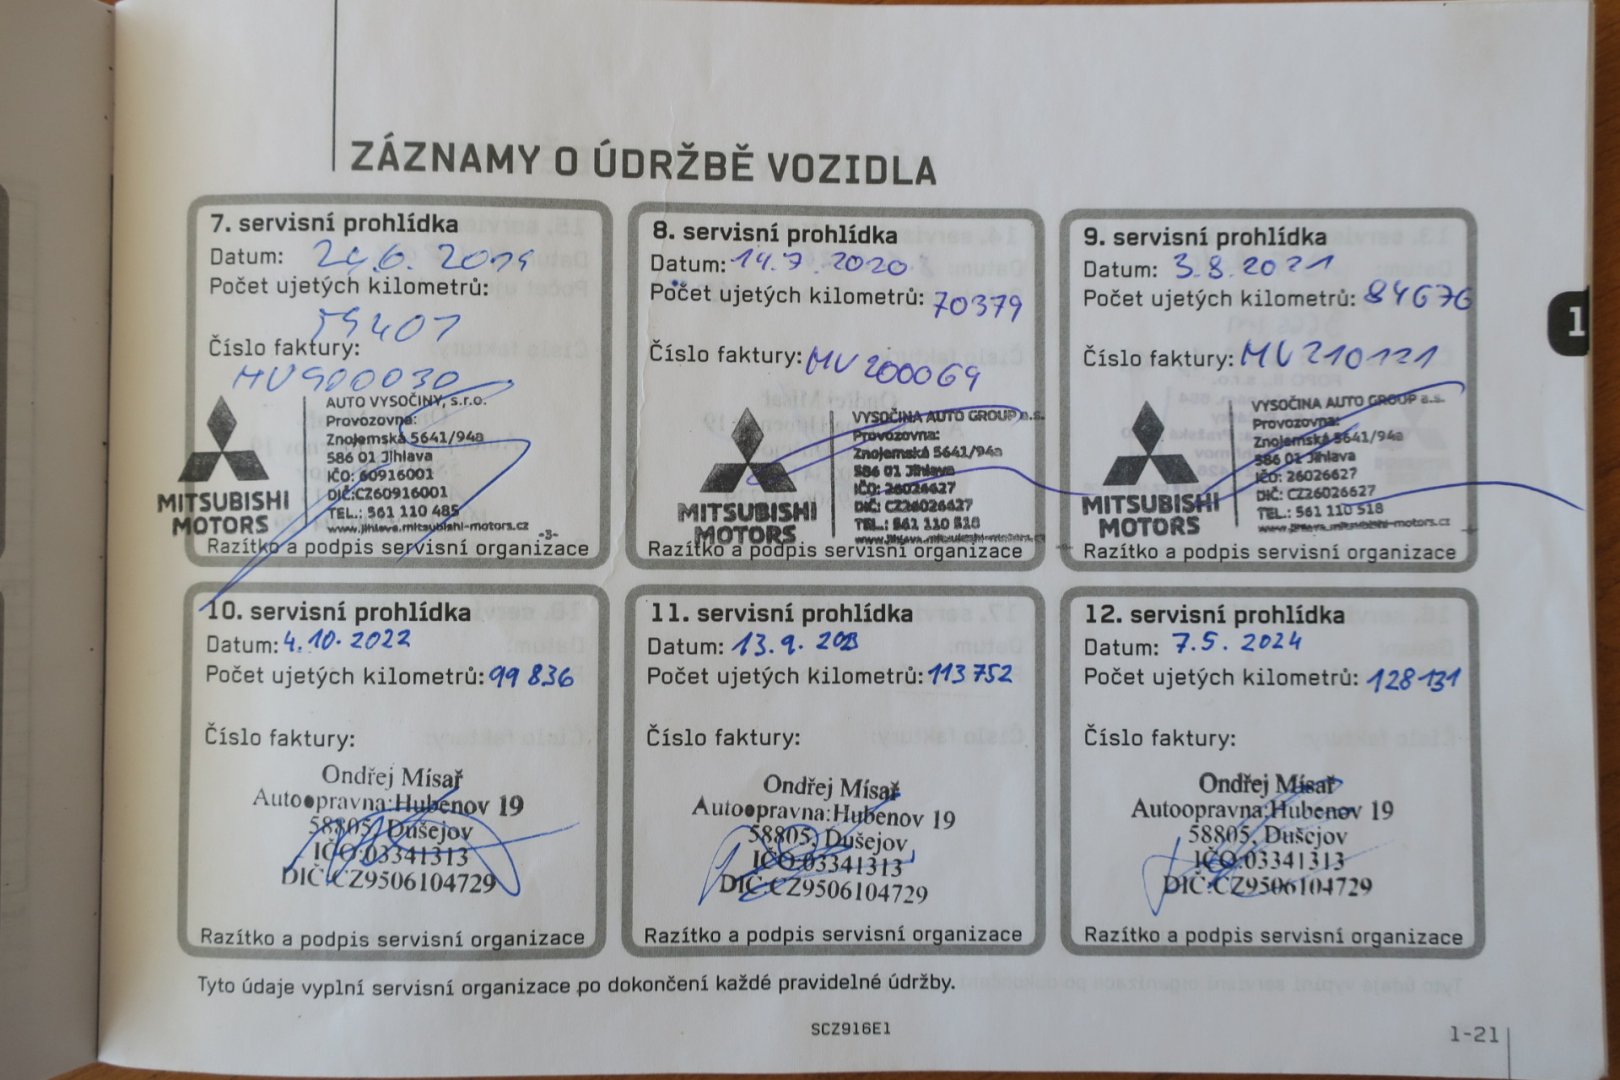 ZÁZNAMY O ÚDRŽBĚ VOZIDLA
7. servisní prohlídka
Datum: 24.6. 2019
Počet ujetých kilometrů:
59401
Číslo faktury:
MV900030
AUTO VYSOČINY, s.r.o.
Provozovna:
Znojemská 5641/94a
586 01 Jihlava
IČO: 60916001
DIČ:CZ60916001
TEL.: 561 110 485
www.jihlava.mitsubishi-motors.cz
-3-
MITSUBISHI
MOTORS
Razítko a podpis servisní organizace
8. servisní prohlídka
Datum: 14.7.2020
Počet ujetých kilometrů: 70379
Číslo faktury: MV200069
VYSOČINA AUTO GROUP a.s.
Provozovna:
Znojemská 5641/94a
586 01 Jihlava
IČO: 26026627
DIČ: CZ26026627
TEL.: 561 110 518
www.jihlava.mitsubishi-motors.cz
MITSUBISHI
MOTORS
Razítko a podpis servisní organizace
9. servisní prohlídka
Datum: 3.8.2021
Počet ujetých kilometrů: 84676
Číslo faktury: MV210121
VYSOČINA AUTO GROUP a.s.
Provozovna:
Znojemská 5641/94a
586 01 Jihlava
IČO: 26026627
DIČ: CZ26026627
TEL.: 561 110 518
www.jihlava.mitsubishi-motors.cz
MITSUBISHI
MOTORS
Razítko a podpis servisní organizace
1
10. servisní prohlídka
Datum: 4.10.2022
Počet ujetých kilometrů: 99 836
Číslo faktury:
Ondřej Mísař
Autoopravna:Hubenov 19
58805, Dušejov
IČO:03341313
DIČ:CZ9506104729
Razítko a podpis servisní organizace
11. servisní prohlídka
Datum: 13.9.2023
Počet ujetých kilometrů: 113 752
Číslo faktury:
Ondřej Mísař
Autoopravna:Hubenov 19
58805, Dušejov
IČO:03341313
DIČ:CZ9506104729
Razítko a podpis servisní organizace
12. servisní prohlídka
Datum: 7.5.2024
Počet ujetých kilometrů: 128 131
Číslo faktury:
Ondřej Mísař
Autoopravna:Hubenov 19
58805, Dušejov
IČO:03341313
DIČ:CZ9506104729
Razítko a podpis servisní organizace
Tyto údaje vyplní servisní organizace po dokončení každé pravidelné údržby.
SCZ916E1
1-21